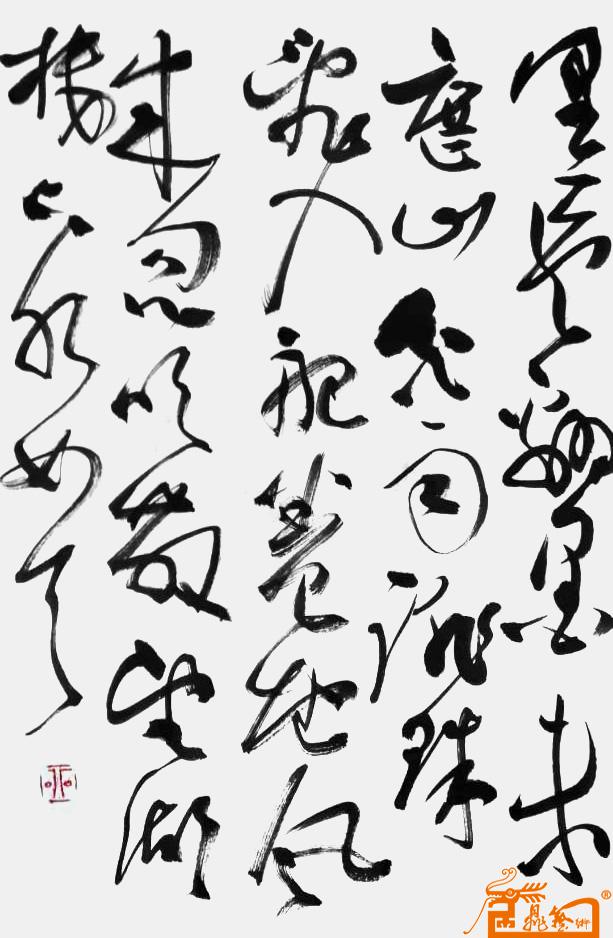 黑雲翻墨未
遮山白雨跳珠
亂入船卷地風
來忽吹散望湖
樓下水如天